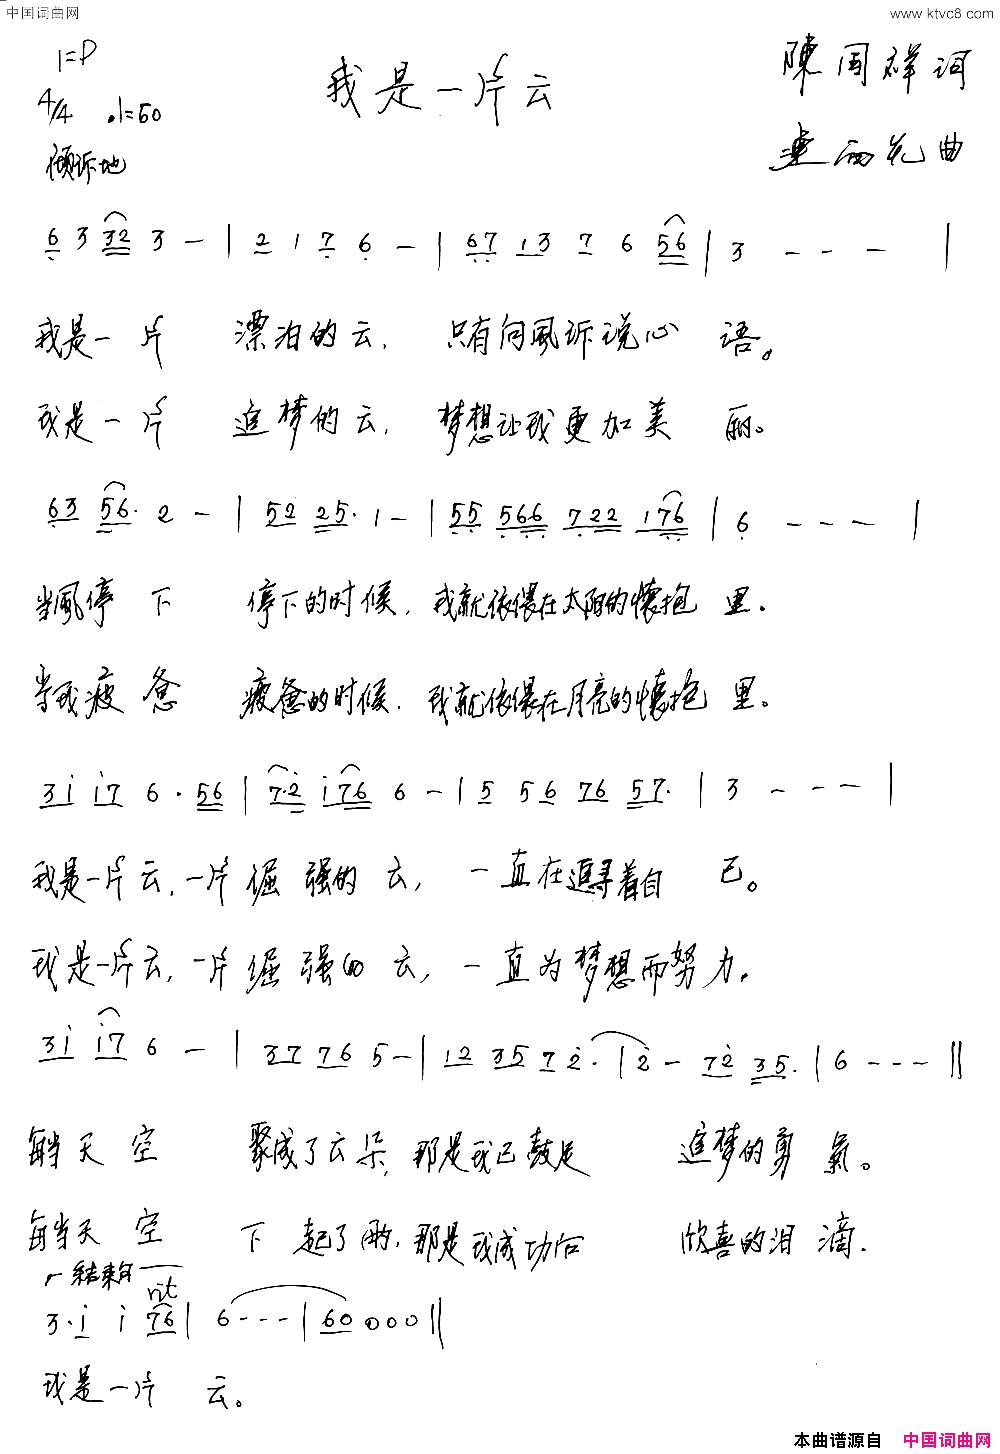 中国词曲网 www.ktvc8.com
1=D
我是一片云
陳国祥词
4/4 ♩=60
倾诉地
雨花曲
6 3 32 3 - | 2 1 7 6 - | 67 13 7 6 56 | 3 - - - |
我是一片 漂泊的云, 只有向風诉说心 语。
我是一片 追梦的云, 梦想让我更加美 丽。
63 56· 2 - | 52 25· 1 - | 55 566 722 176 | 6 - - - |
当風停 下 停下的时候, 我就依偎在太阳的懷抱 里。
当我疲 惫 疲惫的时候, 我就依偎在月亮的懷抱 里。
3i i7 6 · 56 | 7·2 i76 6 - | 5 56 76 57· | 3 - - - |
我是一片云,一片倔 强的 云, 一直在追寻着自 己。
我是一片云,一片倔 强的 云, 一直为梦想而努力。
3i i7 6 - | 37 76 5 - | 12 35 7 2· | 2 - 72 35· | 6 - - - ||
每当天 空 聚成了云朵, 那是我已鼓足 追梦的勇 氣。
每当天 空 下 起了雨, 那是我成功后 欣喜的泪 滴。
结束句 rit
3·i i 76 | 6 - - - | 60 0 0 0 ||
我是一片 云。
本曲谱源自 中国词曲网